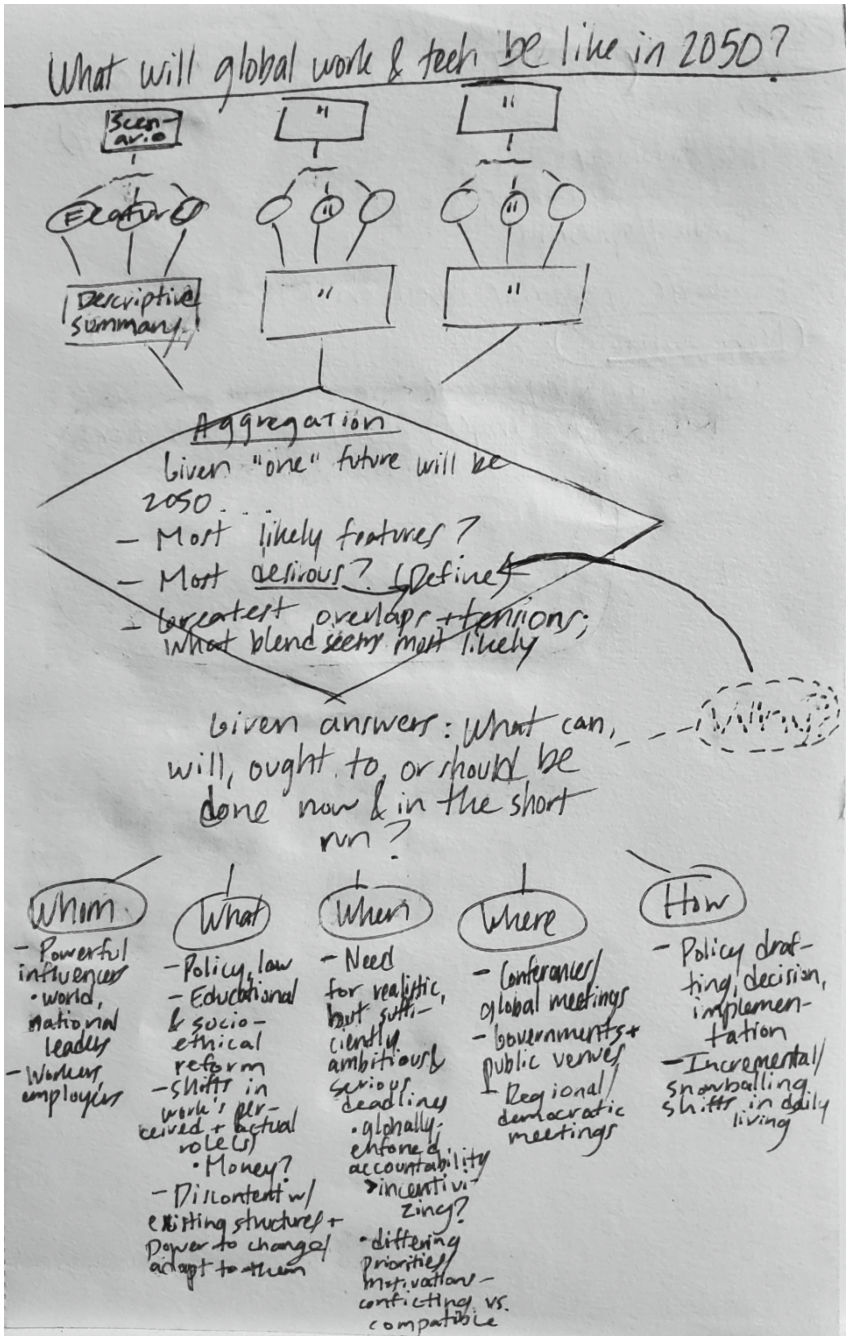 What will global work & tech be like in 2050?
Scen-
ario
"
"
Feature
"
"
Descriptive
summary
"
"
Aggregation
Given "one" future will be
2050....
- Most likely features?
- Most desirous? (Define)
- Greatest overlaps + tensions;
what blend seems most likely
Why?
Given answers: What can,
will, ought to, or should be
done now & in the short
run?
Whom
- Powerful
influencers
• world,
national
leaders
- Workers,
employers
What
- Policy, law
- Educational
& socio-
ethical
reform
- Shifts in
work's per-
ceived + actual
role(s)
• Money?
- Discontent w/
existing structures +
power to change/
adapt to them
When
- Need
for realistic,
but suffi-
ciently
ambitious &
serious
deadlines
• globally-
enforced
accountability
> incentivi-
zing?
• differing
priorities/
motivations -
conflicting vs.
compatible
Where
- Conferences/
global meetings
- Governments +
public venues
- Regional/
democratic
meetings
How
- Policy draf-
ting, decision,
implemen-
tation
- Incremental/
snowballing
shifts in daily
living